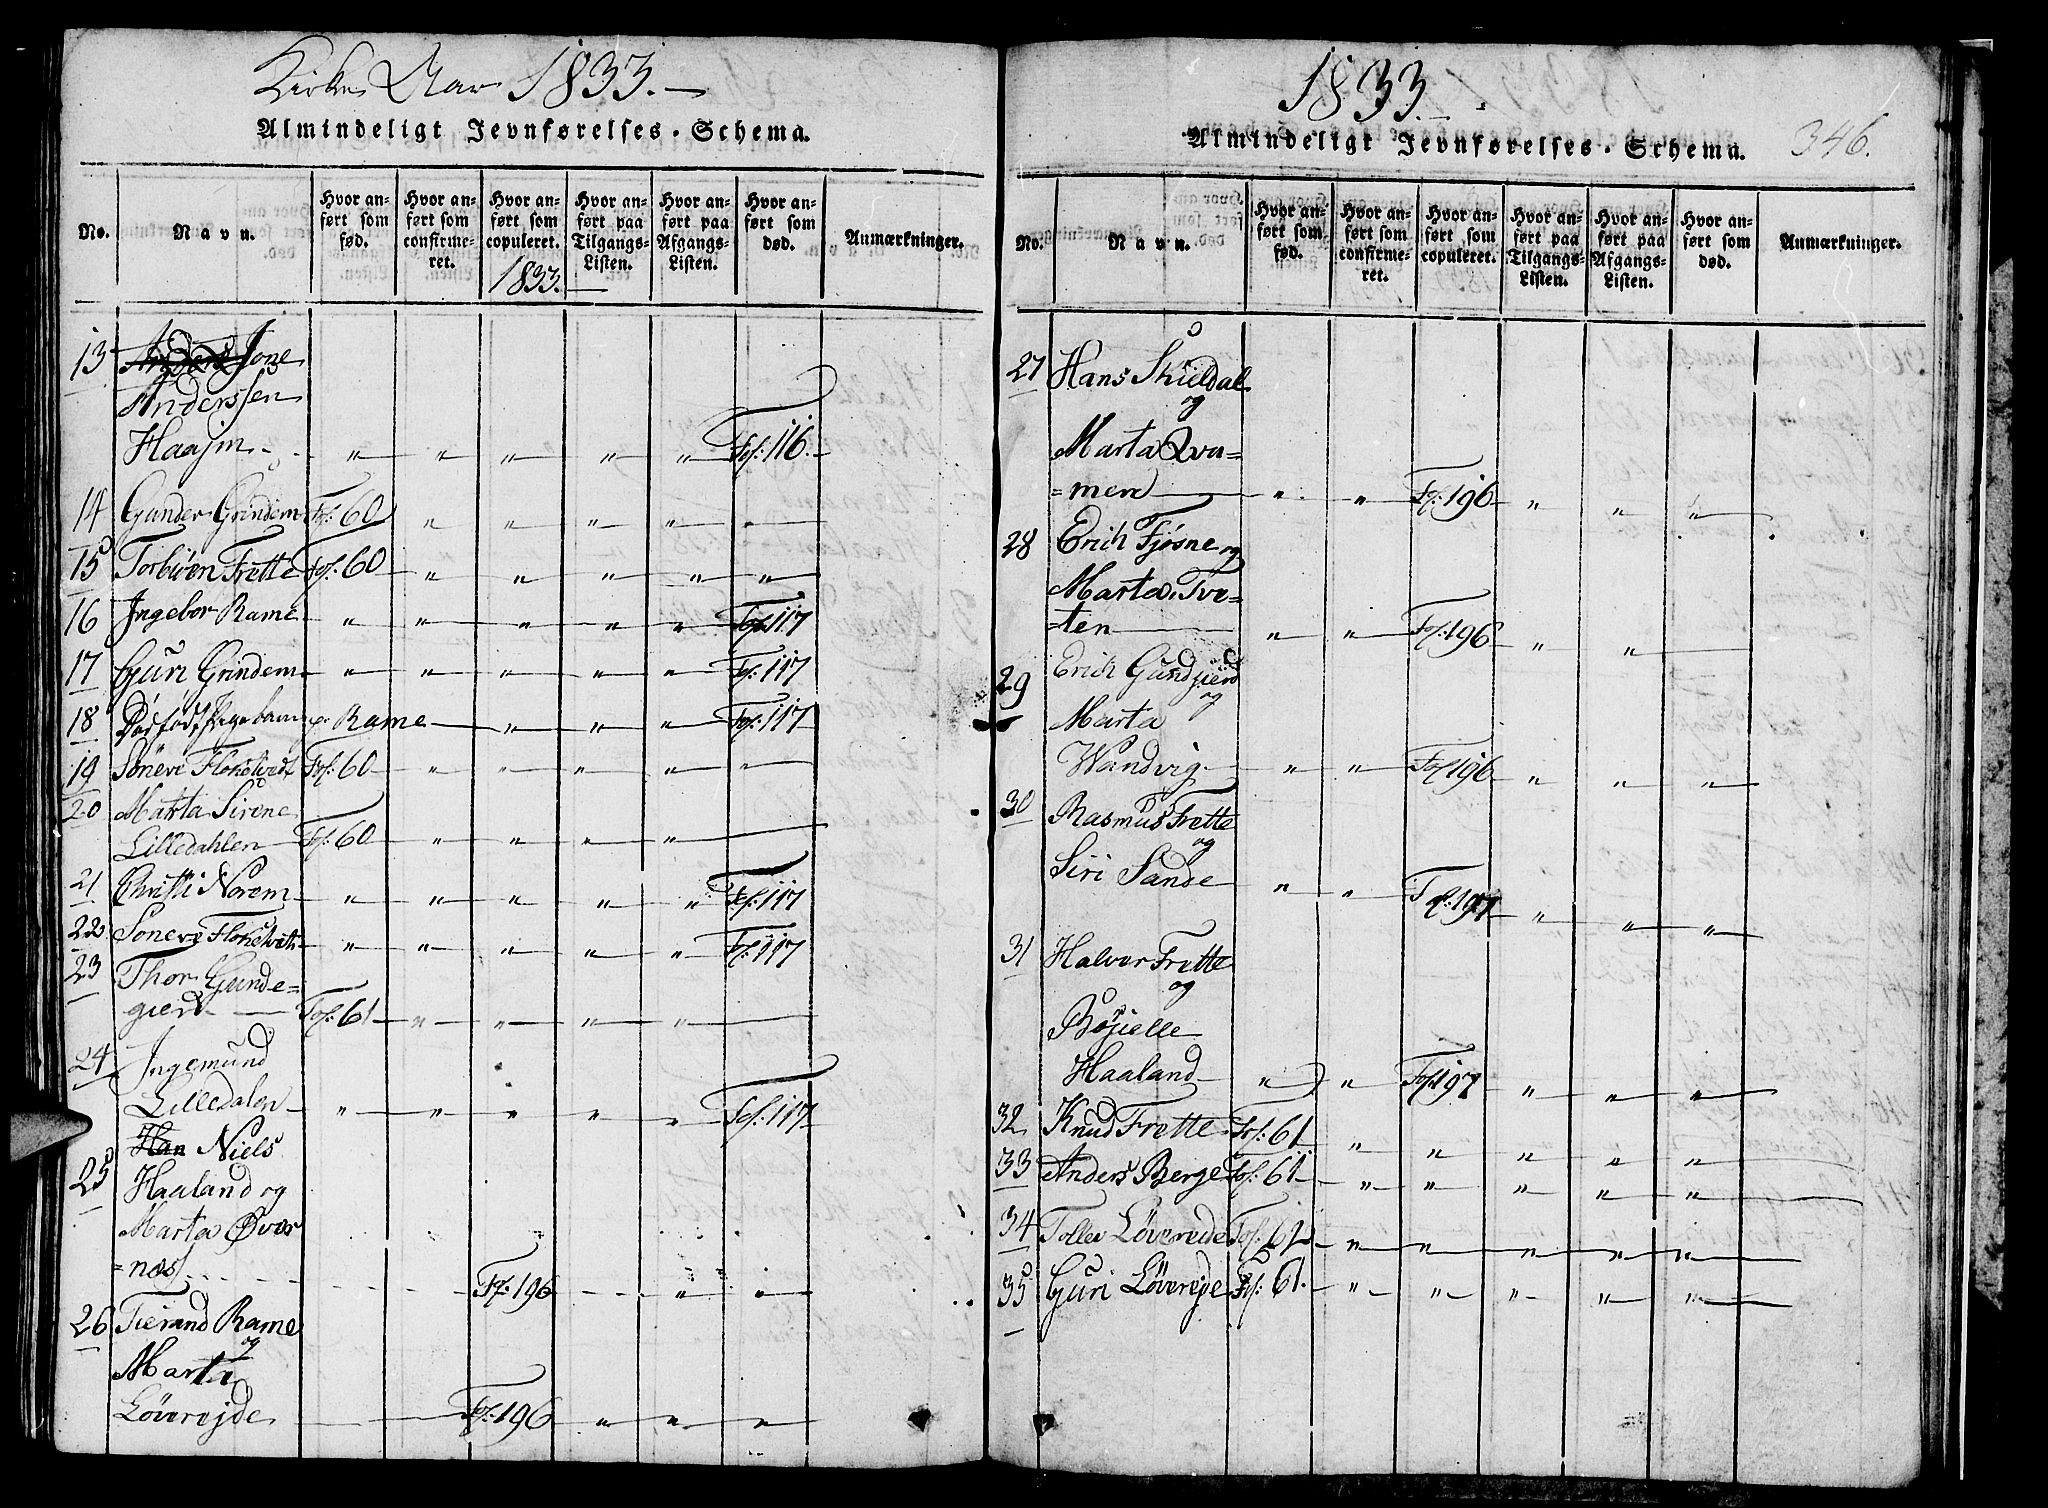 Kirke Aar 1833.
Almindeligt Jevnførelses-Schema.
No.
Navn.
Hvor anført som fød.
Hvor anført som confirmeret.
Hvor anført som copuleret.
1833.
Hvor anført paa Tilgangs-Listen.
Hvor anført paa Afgangs-Listen.
Hvor anført som død.
Anmærkninger.
13 Anders Jone
Anderssen
Haajm " " " " " Fol: 116.
14 Gunder Grindem Fol: 60 " " " "
15 Torbiøen Frette Fol: 60 " " " " "
16 Ingebor Rame " " " " " Fol: 117
17 Guri Grindem " " " " " Fol: 117
18 Dødfødt Pigebarn Rame " " " Fol: 117
19 Søneve Floketvedt Fol: 60 " " " "
20 Marta Sirene
Lilledahlen Fol: 60 " " " "
21 Christi Norem " " " " " Fol: 117
22 Soneve " " " " " Fol: 117
23 Thor Gunde=
gierd Fol: 61 " " " "
24 Ingemund
Lilledalen " " " " " Fol: 117
25 Han Niels
Haaland og
Marta Øvær
=næs Fol: 196 " "
26 Tierand Rame
og
Marta
Löverejde Fol: 196 " " "
1833.
Almindeligt Jevnførelses-Schema.
346.
No.
Navn.
Hvor anført som fød.
Hvor anført som confirmeret.
Hvor anført som copuleret.
Hvor anført paa Tilgangs-Listen.
Hvor anført paa Afgangs-Listen.
Hvor anført som død.
Anmærkninger.
27 Hans Skieldal
og
Marta Qva=
=men " " Fol: 196 " " "
28 Erich Fjøsne og
Marta Tve=
=ten " " Fol: 196 " "
29 Erich Gundgierd
og
Marta
Wandvig " " Fol: 196 " " "
30 Rasmus Frette
og
Siri Sande " " Fol: 197 " " "
31 Halvor Frette
og
Bøjielle
Haaland " " Fol: 197 " " "
32 Knud Frette Fol: 61 " " " " "
33 Anders Berge Fol: 61 " " " " "
34 Tollev Löverede Fol: 61 " " " " "
35 Guri Löverejde Fol: 61. " " " " "